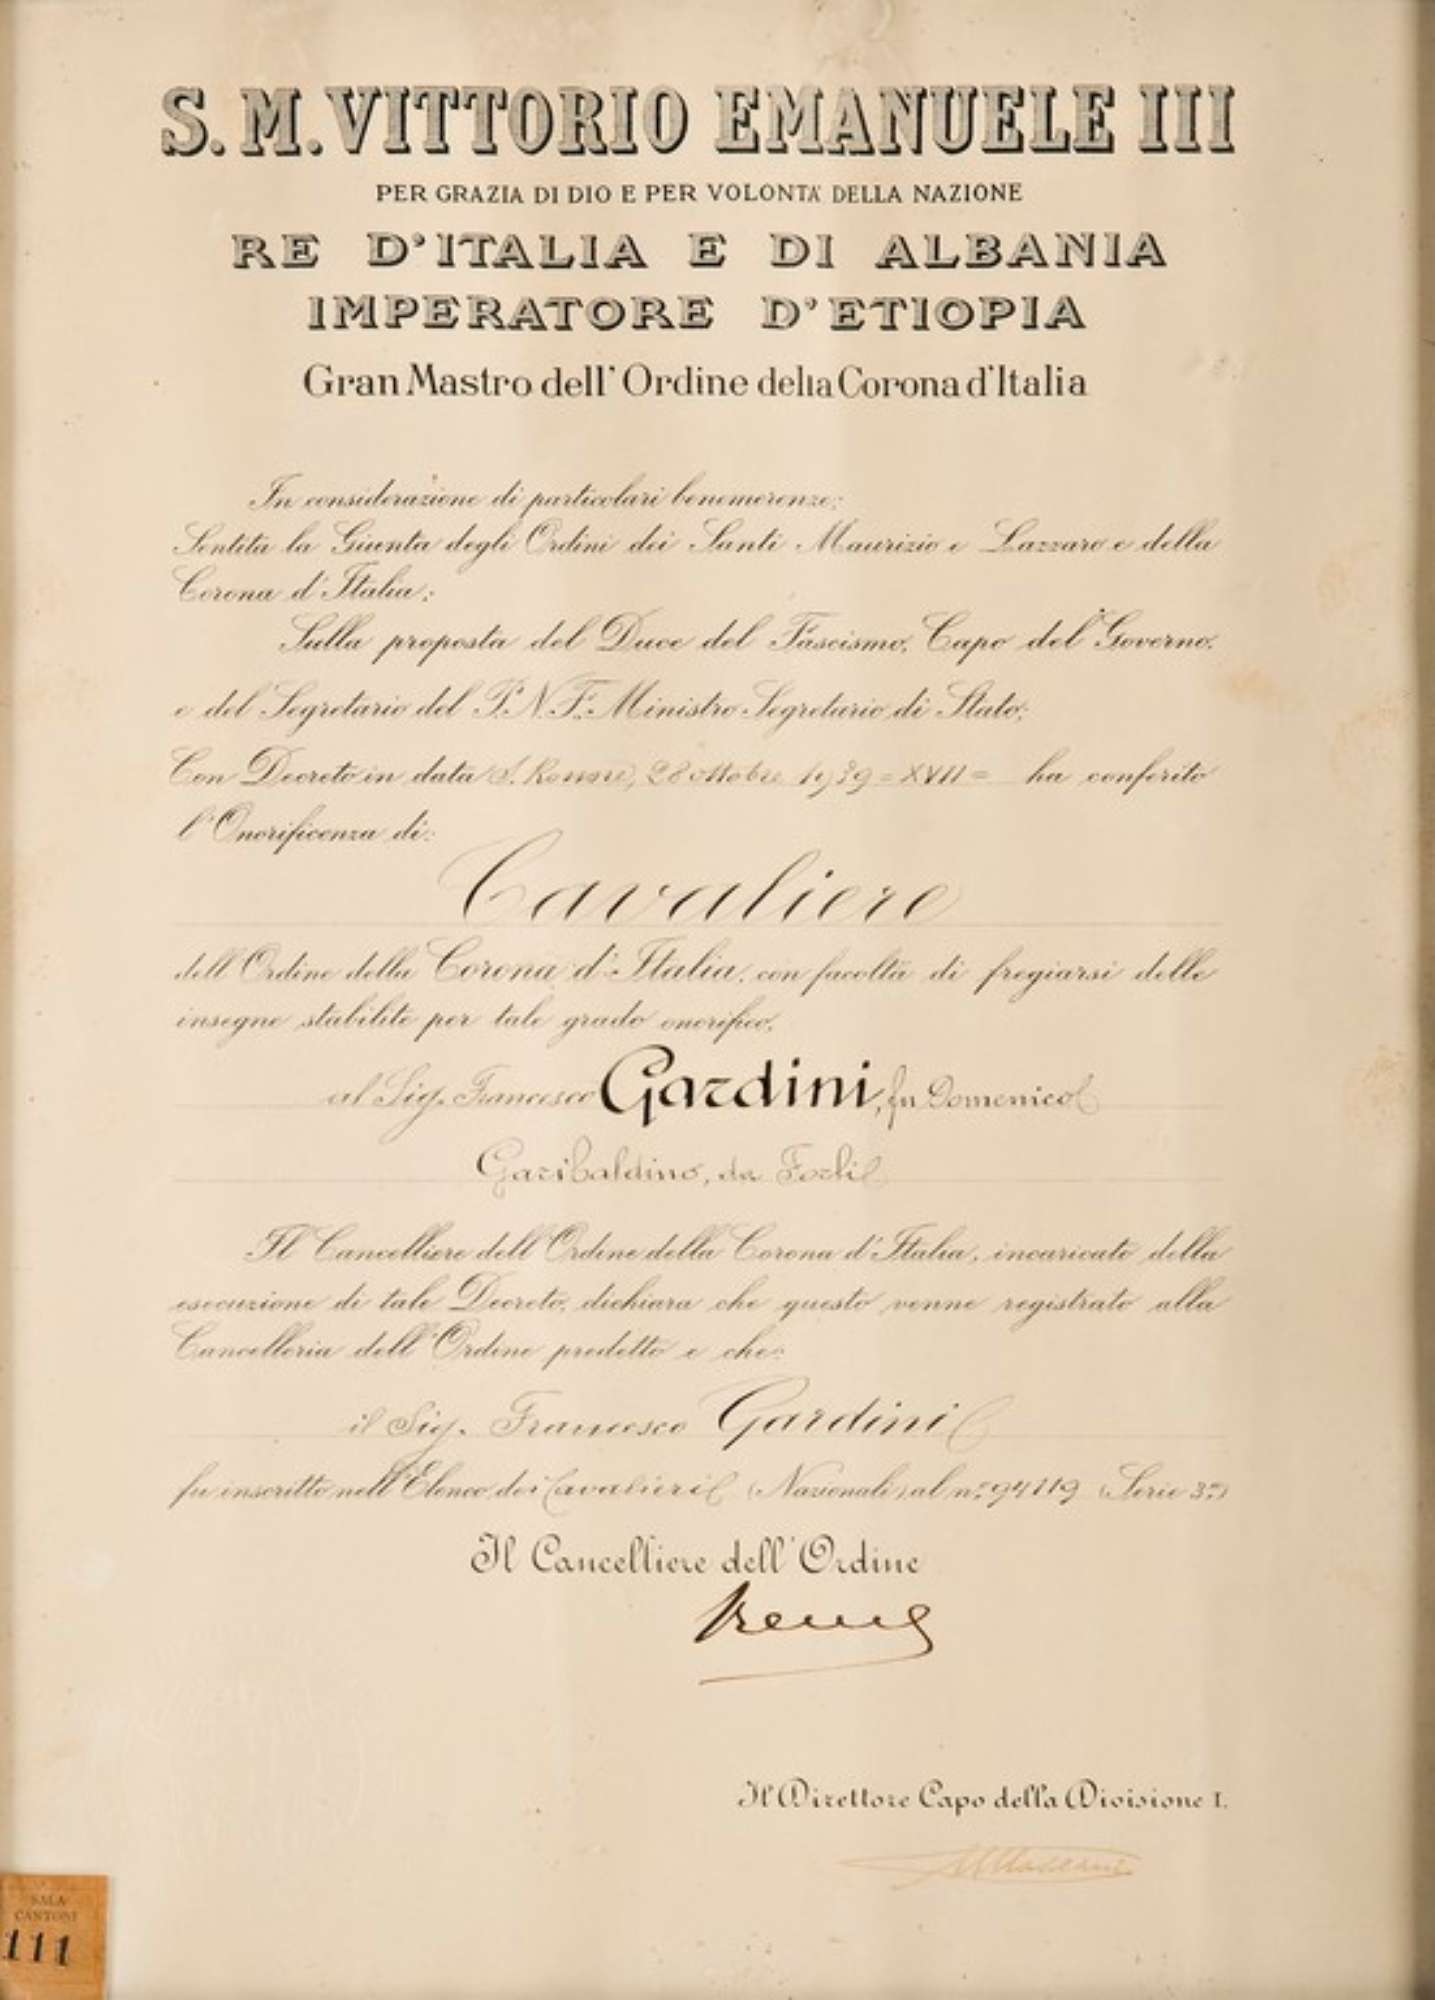 S. M. VITTORIO EMANUELE III
PER GRAZIA DI DIO E PER VOLONTA' DELLA NAZIONE
RE D'ITALIA E DI ALBANIA
IMPERATORE D'ETIOPIA
Gran Mastro dell'Ordine della Corona d'Italia
In considerazione di particolari benemerenze;
Sentita la Giunta degli Ordini dei Santi Maurizio e Lazzaro e della
Corona d'Italia;
Sulla proposta del Duce del Fascismo, Capo del Governo,
e del Segretario del P.N.F. Ministro Segretario di Stato;
Con Decreto in data S. Rossore, 28 ottobre 1939 = XVII = ha conferito
l'Onorificenza di:
Cavaliere
dell'Ordine della Corona d'Italia, con facoltà di fregiarsi delle
insegne stabilite per tale grado onorifico,
al Sig. Francesco Gardini, fu Domenico
Garibaldino, da Forlì
Il Cancelliere dell'Ordine della Corona d'Italia, incaricato della
esecuzione di tale Decreto, dichiara che questo venne registrato alla
Cancelleria dell'Ordine predetto e che:
il Sig. Francesco Gardini
fu inscritto nell'Elenco dei Cavalieri (Nazionali) al n.° 94119 (Serie 3ª)
Il Cancelliere dell'Ordine
Il Direttore Capo della Divisione I.
SALA
CANTONI
111